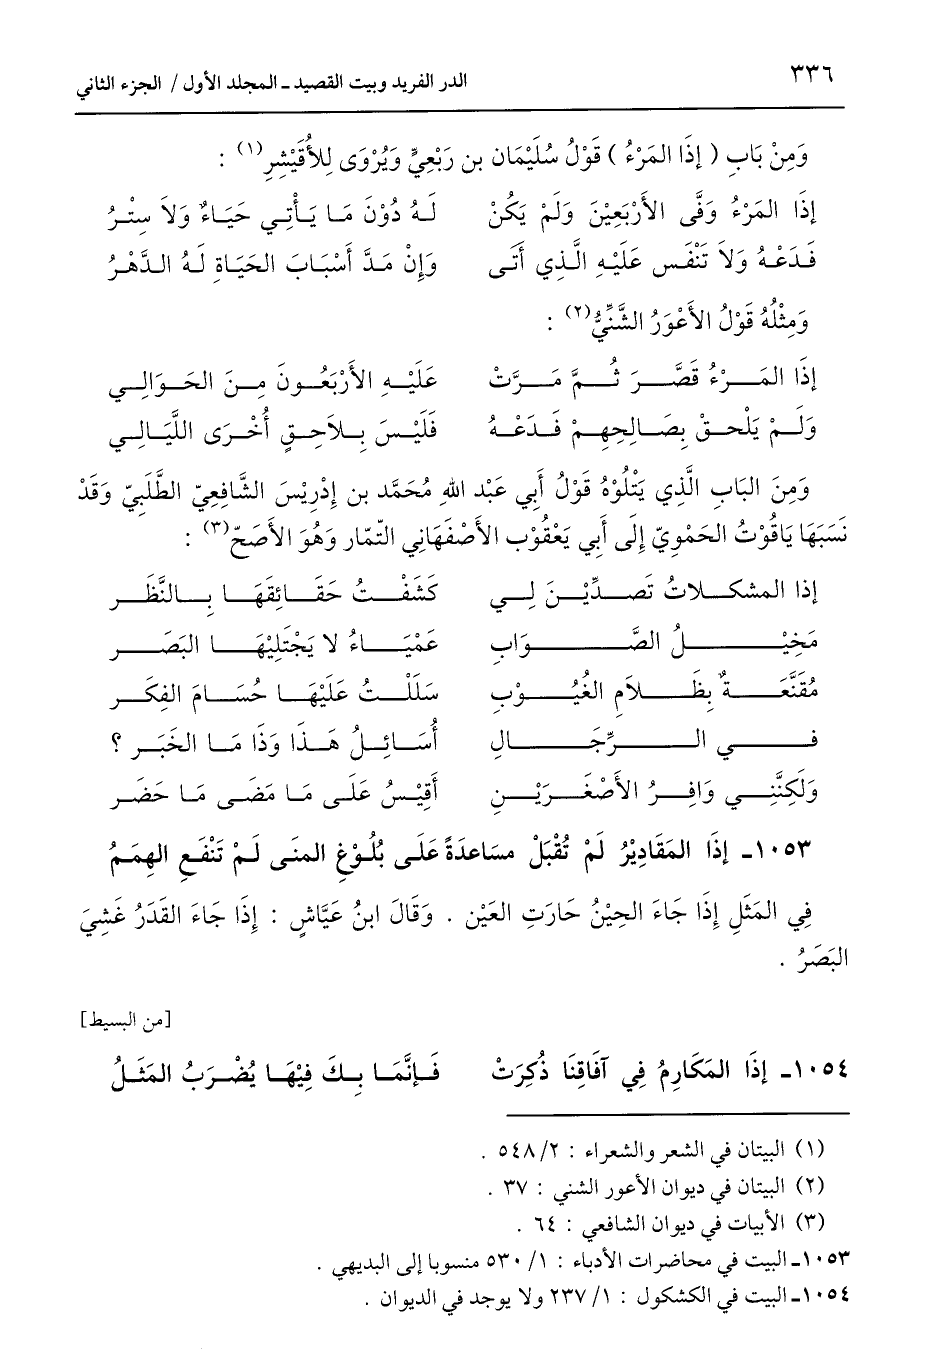 ٣٣٦ الدر الفريد وبيت القصيد ـ المجلد الأول / الجزء الثاني
وَمِنْ بَابِ ( إذَا المَرْءُ ) قَوْلُ سُلَيْمَان بن رَبَعِيٍّ وَيُرْوَى لِلأُقَيْشِرِ(١) :
إذَا المَرْءُ وَفَّى الأَرْبَعِيْنَ وَلَمْ يَكُنْ لَهُ دُوْنَ مَا يَأْتِي حَيَاءٌ وَلاَ سِتْرُ
فَدَعْهُ وَلاَ تَنْفَس عَلَيْهِ الَّذِي أَتَى وَإِنْ مَدَّ أَسْبَابَ الحَيَاةِ لَهُ الدَّهْرُ
وَمِثْلُهُ قَوْلُ الأَعْوَرُ الشَّنِّيُّ(٢) :
إذَا المَرْءُ قَصَّرَ ثُمَّ مَرَّتْ عَلَيْهِ الأَرْبَعُونَ مِنَ الحَوَالِي
وَلَمْ يَلْحقْ بِصَالِحِهِمْ فَدَعْهُ فَلَيْسَ بِلاَحِقٍ أُخْرَى اللَّيَالِي
وَمِنَ البَابِ الَّذِي يَتْلُوْهُ قَوْلُ أَبِي عَبْد اللهِ مُحَمَّد بن إدْرِيْسَ الشَّافِعِيّ الطَّلَبِيّ وَقَدْ
نَسَبَهَا يَاقُوْتُ الحَمْوِيّ إلَى أَبِي يَعْقُوْب الأَصْفَهَانِي التّمَار وَهُوَ الأَصَحّ(٣) :
إذا المشكلاتُ تَصَدَّيْنَ لِي كَشَفْتُ حَقَائِقَهَا بِالنَّظَر
مَخِيْلُ الصَّوَابِ عَمْيَاءُ لا يَجْتَلِيْهَا البَصَر
مُقَنَّعَةٌ بِظَلاَمِ الغُيُوْبِ سَلَلْتُ عَلَيْهَا حُسَامَ الفِكَر
في الرِّجَالِ أُسَائِلُ هَذَا وَذَا مَا الخَبَر ؟
وَلَكِنَّنِي وَافِرُ الأَصْغَرَيْنِ أَقِيْسُ عَلَى مَا مَضَى مَا حَضَر
١٠٥٣ـ إذَا المَقَادِيْرُ لَمْ تُقْبَلْ مسَاعدَةً عَلَى بُلُوْغِ المنَى لَمْ تَنْفَعِ الهِمَمُ
فِي المَثَلِ إذَا جَاءَ الحِيْنُ حَارَتِ العَيْن . وَقَالَ ابنُ عَيَّاشٍ : إذَا جَاءَ القَدَرُ غَشِيَ
البَصَرُ .
[من البسيط]
١٠٥٤ـ إذَا المَكَارِمُ فِي آفَاقِنَا ذُكِرَتْ فَإنَّمَا بِكَ فِيْهَا يُضْرَبُ المَثَلُ
(١) البيتان في الشعر والشعراء : ٢/ ٥٤٨ .
(٢) البيتان في ديوان الأعور الشني : ٣٧ .
(٣) الأبيات في ديوان الشافعي : ٦٤ .
١٠٥٣ـ البيت في محاضرات الأدباء : ١/ ٥٣٠ منسوبا إلى البديهي .
١٠٥٤ـ البيت في الكشكول : ١/ ٢٣٧ ولا يوجد في الديوان .